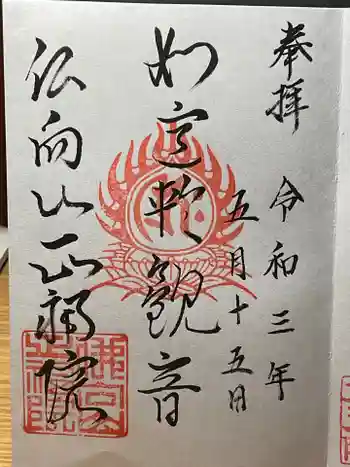 奉拝 令和三年
五月十五日
如意輪観音
仏向山正福院